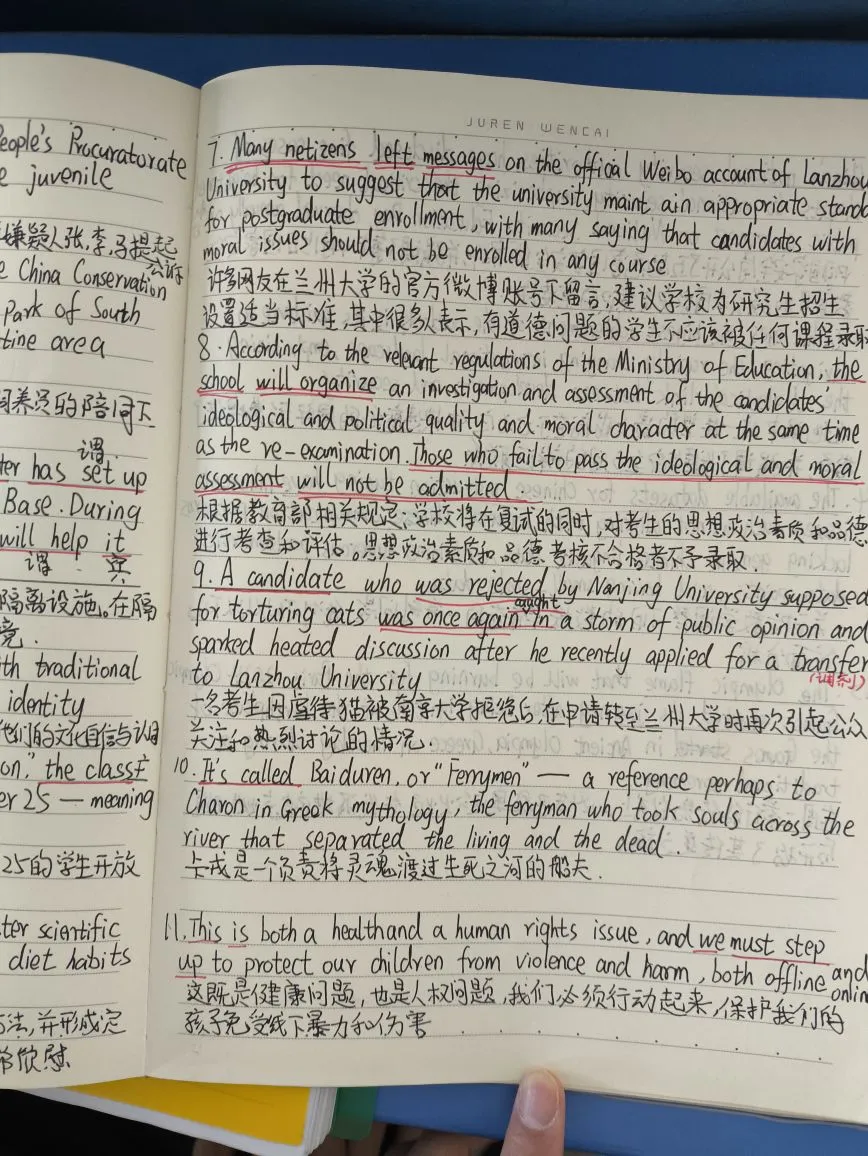 People's Procuratorate
juvenile
嫌疑人张,李,马提起
公诉
China Conservation
Park of South
tine area
饲养员的陪同下
谓
ter has set up
Base. During
will help it
谓 宾
隔离设施。在隔
境.
ith traditional
identity
他们的文化自信与认同
on," the class主
er 25 — meaning
25的学生开放
ter scientific
diet habits
方法,并形成定
常欣慰.
JUREN WENCAI
7. Many netizens left messages on the official Weibo account of Lanzhou
University to suggest that the university maint ain appropriate stand
for postgraduate enrollment, with many saying that candidates with
moral issues should not be enrolled in any course
许多网友在兰州大学的官方微博账号下留言,建议学校为研究生招生
设置适当标准,其中很多人表示,有道德问题的学生不应该被任何课程录取
8. According to the relevant regulations of the Ministry of Education, the
school will organize an investigation and assessment of the candidates
ideological and political quality and moral character at the same time
as the re-examination. Those who fail to pass the ideological and moral
assessment will not be admitted
根据教育部相关规定;学校将在复试的同时,对考生的思想政治素质和品德
进行考查和评估。思想政治素质和品德考核不合格者不予录取.
9. A candidate who was rejected by Nanjing University supposed
for torturing cats was once again caught in a storm of public opinion and
sparked heated discussion after he recently applied for a transfer
(调剂)
to Lanzhou University
一名考生因虐待猫被南京大学拒绝后,在申请转至兰州大学时再次引起公众
关注和热烈讨论的情况.
10. It's called Baiduren, or "Ferrymen" — a reference perhaps to
Charon in Greek mythology, the ferryman who took souls across the
river that separated the living and the dead.
卡戎是一个负责将灵魂渡过生死之河的船夫.
11. This is both a health and a human rights issue, and we must step
up to protect our children from violence and harm, both offline and
online
这既是健康问题,也是人权问题,我们必须行动起来,保护我们的
孩子免受线下暴力和伤害